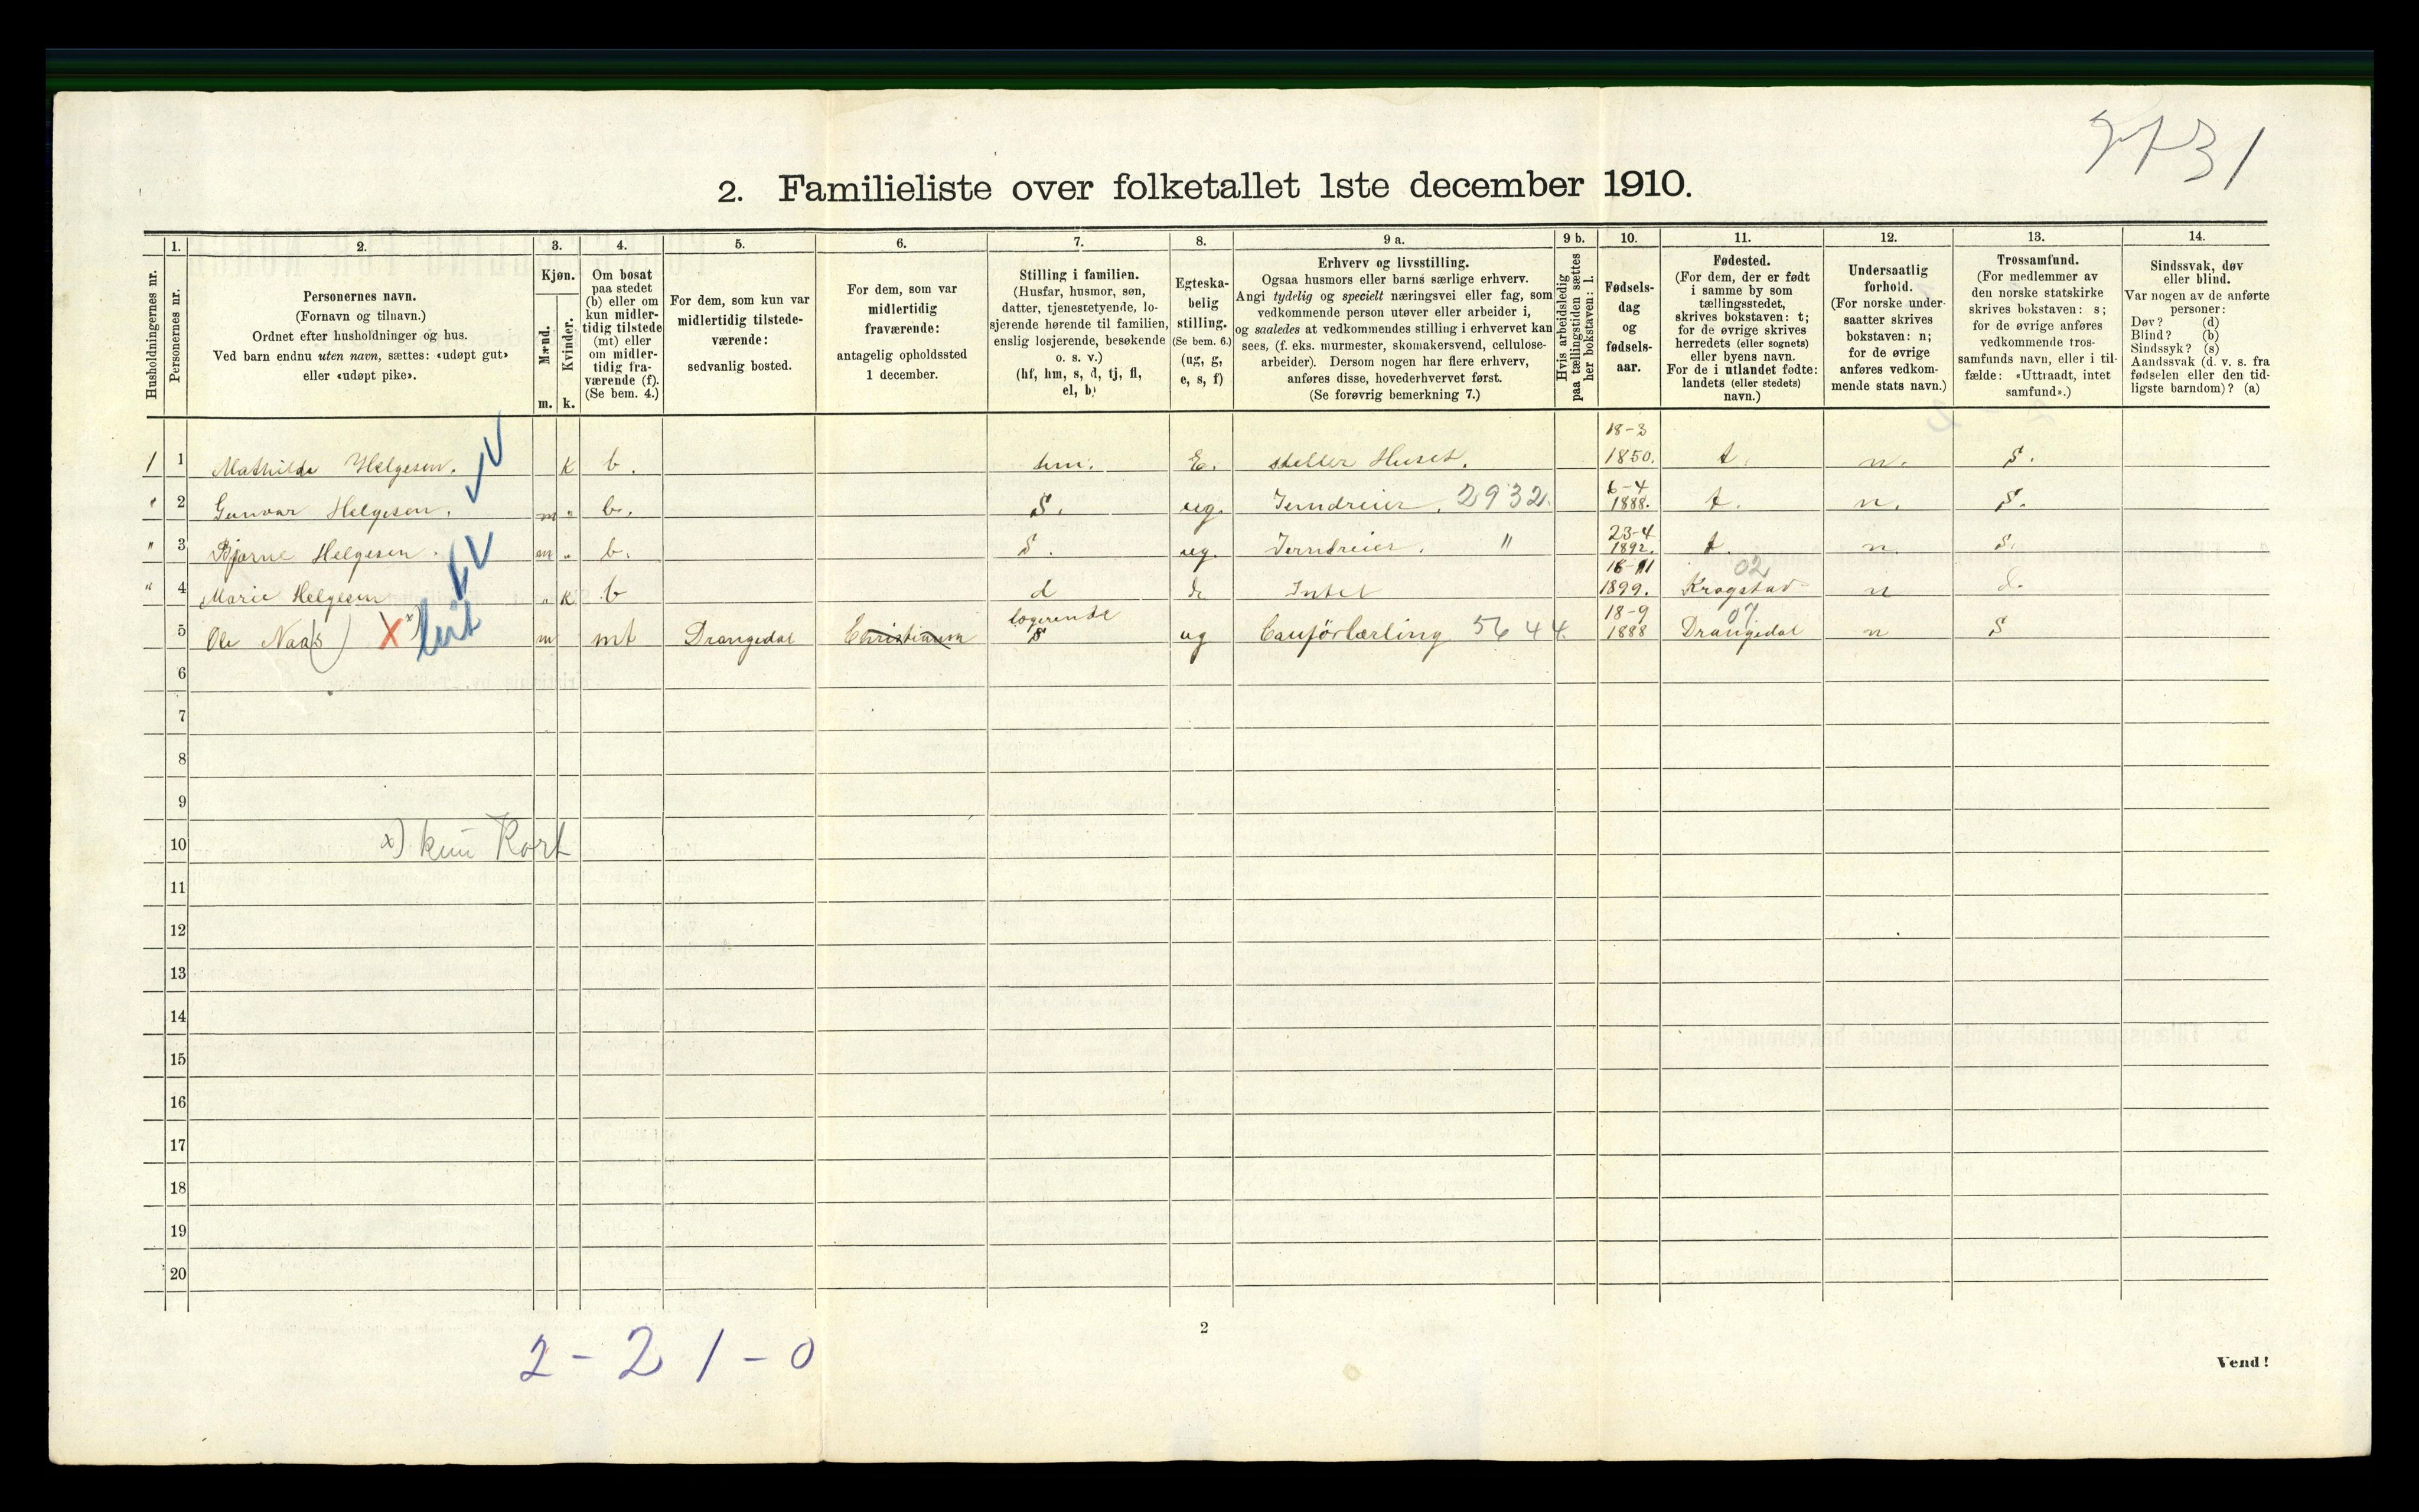 2. Familieliste over folketallet 1ste december 1910.
Husholdningernes nr.
1.
Personernes nr.
2.
Personernes navn.
(Fornavn og tilnavn.)
Ordnet efter husholdninger og hus.
Ved barn endnu uten navn, sættes: «udøpt gut»
eller «udøpt pike».
3.
Kjøn.
Mænd.
Kvinder.
m. k.
4.
Om bosat
paa stedet
(b) eller om
kun midler-
tidig tilstede
(mt) eller
om midler-
tidig fra-
værende (f).
(Se bem. 4.)
5.
For dem, som kun var
midlertidig tilstede-
værende:
sedvanlig bosted.
6.
For dem, som var
midlertidig
fraværende:
antagelig opholdssted
1 december.
7.
Stilling i familien.
(Husfar, husmor, søn,
datter, tjenestetyende, lo-
sjerende hørende til familien,
enslig losjerende, besøkende
o. s. v.)
(hf, hm, s, d, tj, fl,
el, b)
8.
Egteska-
belig
stilling.
(Se bem. 6.)
(ug, g,
e, s, f)
9 a.
Erhverv og livsstilling.
Ogsaa husmors eller barns særlige erhverv.
Angi tydelig og specielt næringsvei eller fag, som
vedkommende person utøver eller arbeider i,
og saaledes at vedkommendes stilling i erhvervet kan
sees, (f. eks. murmester, skomakersvend, cellulose-
arbeider). Dersom nogen har flere erhverv,
anføres disse, hovederhvervet først.
(Se forøvrig bemerkning 7.)
9 b.
Hvis arbeidsledig
paa tællingstiden sættes
her bokstaven: l.
10.
Fødsels-
dag
og
fødsels-
aar.
11.
Fødested.
(For dem, der er født
i samme by som
tællingsstedet,
skrives bokstaven: t;
for de øvrige skrives
herredets (eller sognets)
eller byens navn.
For de i utlandet fødte:
landets (eller stedets)
navn.)
12.
Undersaatlig
forhold.
(For norske under-
saatter skrives
bokstaven: n;
for de øvrige
anføres vedkom-
mende stats navn.)
13.
Trossamfund.
(For medlemmer av
den norske statskirke
skrives bokstaven: s;
for de øvrige anføres
vedkommende tros-
samfunds navn, eller i til-
fælde: «Uttraadt, intet
samfund».)
14.
Sindssvak, døv
eller blind.
Var nogen av de anførte
personer:
Døv? (d)
Blind? (b)
Sindssyk? (s)
Aandssvak (d. v. s. fra
fødselen eller den tid-
ligste barndom)? (a)
1 1 Mathilde Helgesen. k b. hm. E. steller Huset. 18-3 1850. t. n. S.
" 2 Gunvar Helgesen. m " b. S. ug. Jerndreier. 2932. 6-4 1888. t. n. S.
" 3 Bjarne Helgesen. m " b. S. ug. Jerndreier. " 23-4 1892. t. n. S.
" 4 Marie Helgesen " k b d Intet 16-11 1899. Krogstad 02 n
5 Ole Naas X x) m mt Drangedal Christiania logerende S ug 5644. 18-9 1888 Drangedal 07 n S
6
7
8
9
10 x) kun Kort
11
12
13
14
15
16
17
18
19
20
2
2 - 2 1 - 0
Vend!